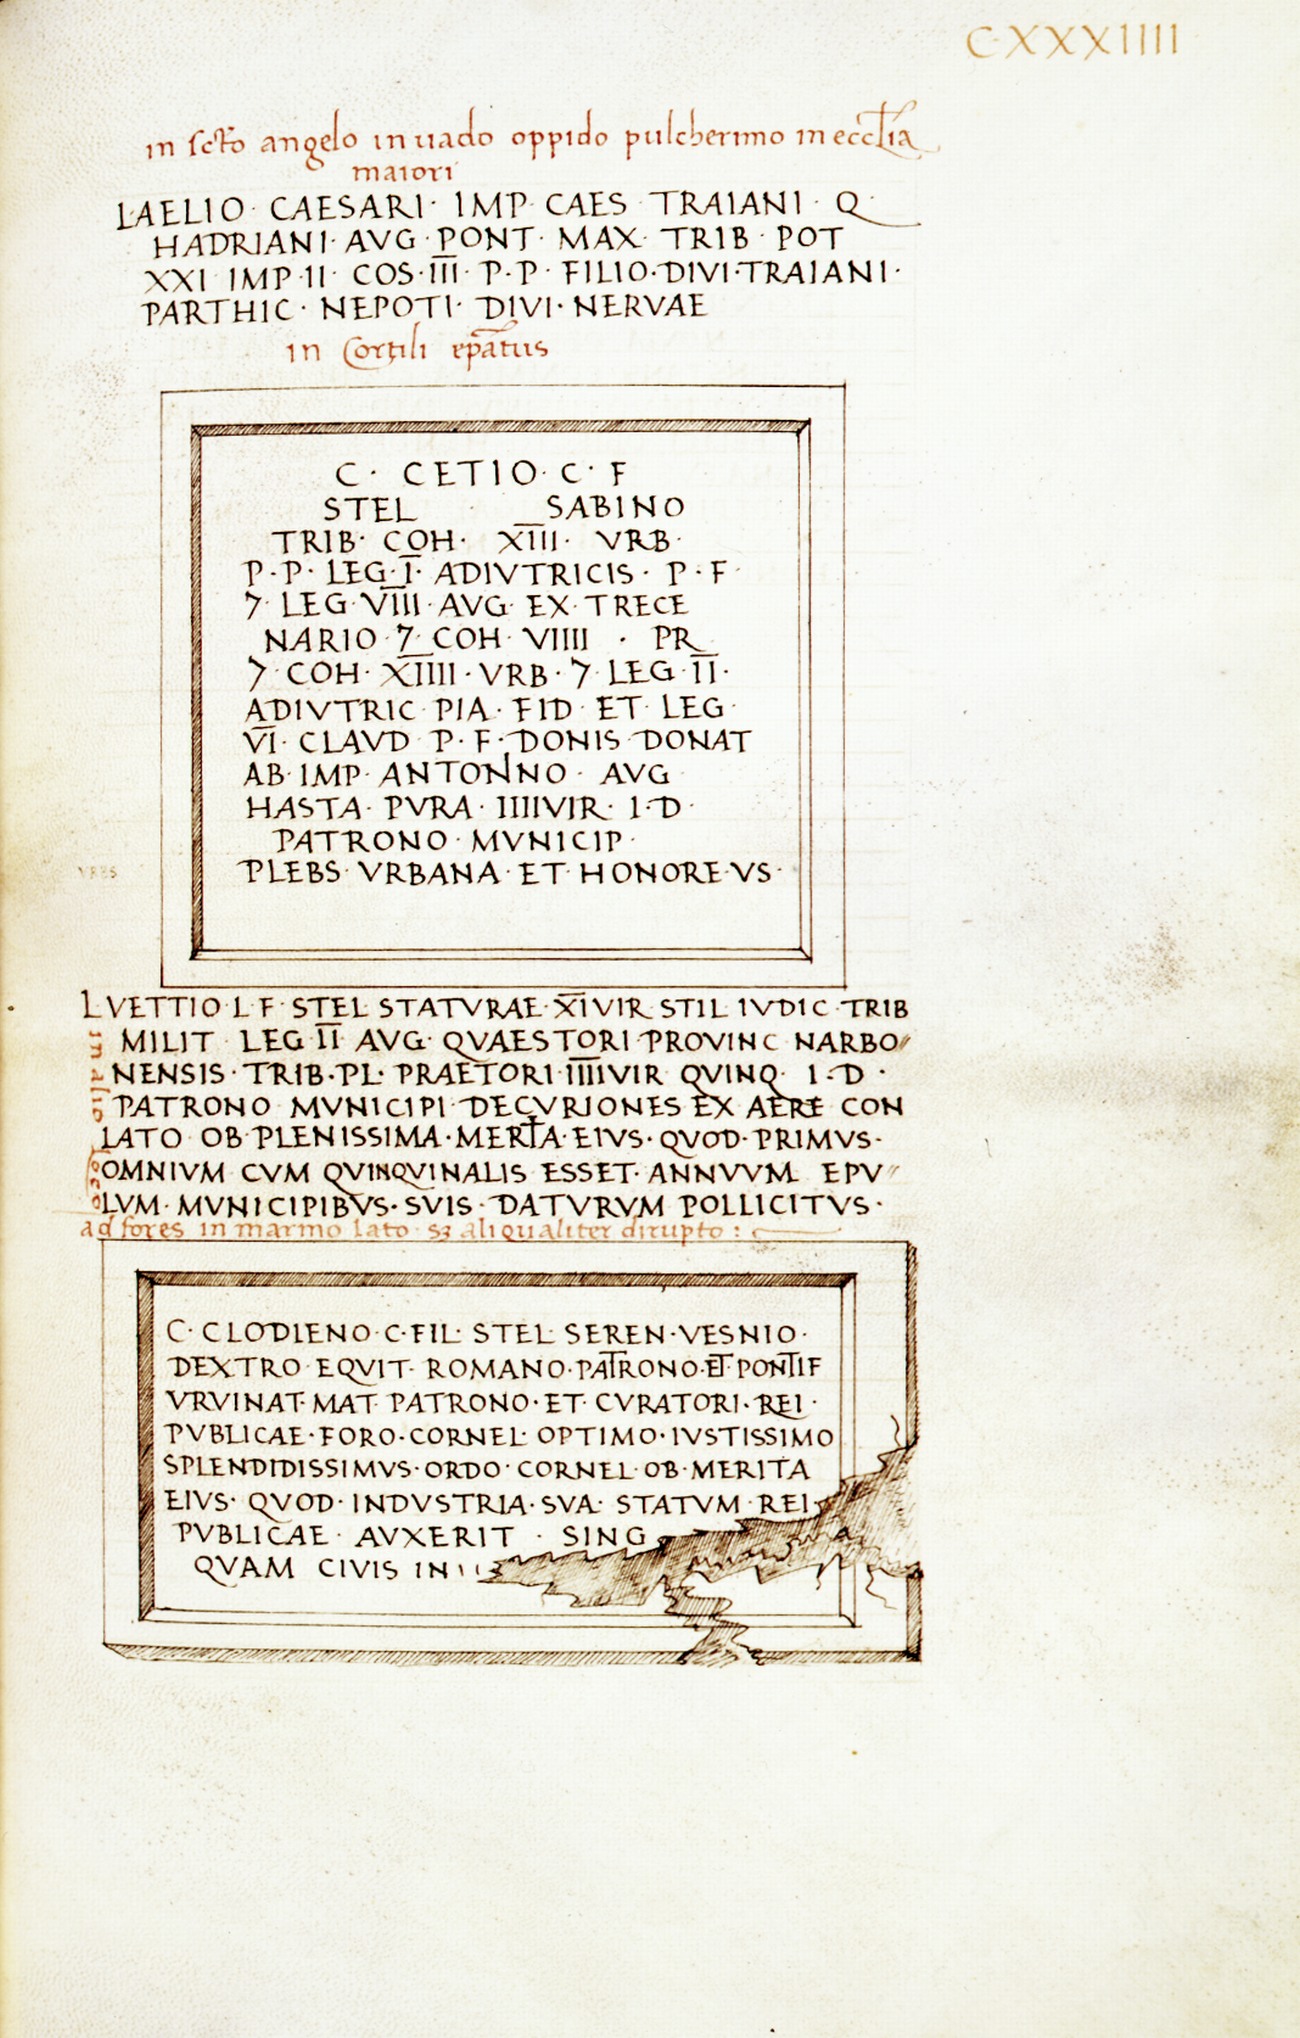 C·XXXIIII
in scto angelo in uado oppido pulcherimo in ecclia
maiori
L·AELIO· CAESARI· IMP· CAES TRAIANI· Q·
HADRIANI· AVG· PONT· MAX· TRIB· POT
XXI IMP·II· COS·III· P·P· FILIO·DIVI·TRAIANI·
PARTHIC· NEPOTI· DIVI· NERVAE
in Cortili epatus
C· CETIO· C· F
STEL SABINO
TRIB· COH· XIIII· VRB·
P·P· LEG·I· ADIVTRICIS· P·F·
7· LEG·VIIII·AVG· EX·TRECE
NARIO·7·COH·VIIII · PR
7·COH·XIIII·VRB·7·LEG·II·
ADIVTRIC·PIA·FID·ET·LEG·
VI·CLAVD P·F·DONIS·DONAT
AB·IMP·ANTONINO· AVG
HASTA·PVRA·IIIIVIR·I·D·
PATRONO·MVNICIP·
VRBS
PLEBS·VRBANA·ET·HONORE·VS·
L·VETTIO·L·F·STEL STATVRAE·XIVIR STIL IVDIC·TRIB
MILIT LEG·II AVG·QVAESTORI PROVINC NARBO
NENSIS·TRIB·PL·PRAETORI·IIIIVIR QVINQ· I·D·
PATRONO MVNICIPI·DECVRIONES EX AERE CON
LATO OB·PLENISSIMA·MERITA·EIVS·QVOD·PRIMVS·
OMNIVM CVM QVINQVINALIS ESSET·ANNVVM EPV
LVM·MVNICIPIBVS·SVIS·DATVRVM POLLICITVS·
ad fores in marmo lato s3 aliqualiter dirupto :
C·CLODIENO·C·FIL·STEL·SEREN·VESNIO·
DEXTRO·EQVIT·ROMANO·PATRONO·ET·PONTIF
VRVINAT·MAT·PATRONO·ET·CVRATORI·REI·
PVBLICAE·FORO·CORNEL·OPTIMO·IVSTISSIMO
SPLENDIDISSIMVS·ORDO·CORNEL·OB·MERITA
EIVS·QVOD·INDVSTRIA·SVA·STATVM·REI
PVBLICAE·AVXERIT·SING
QVAM CIVIS IN